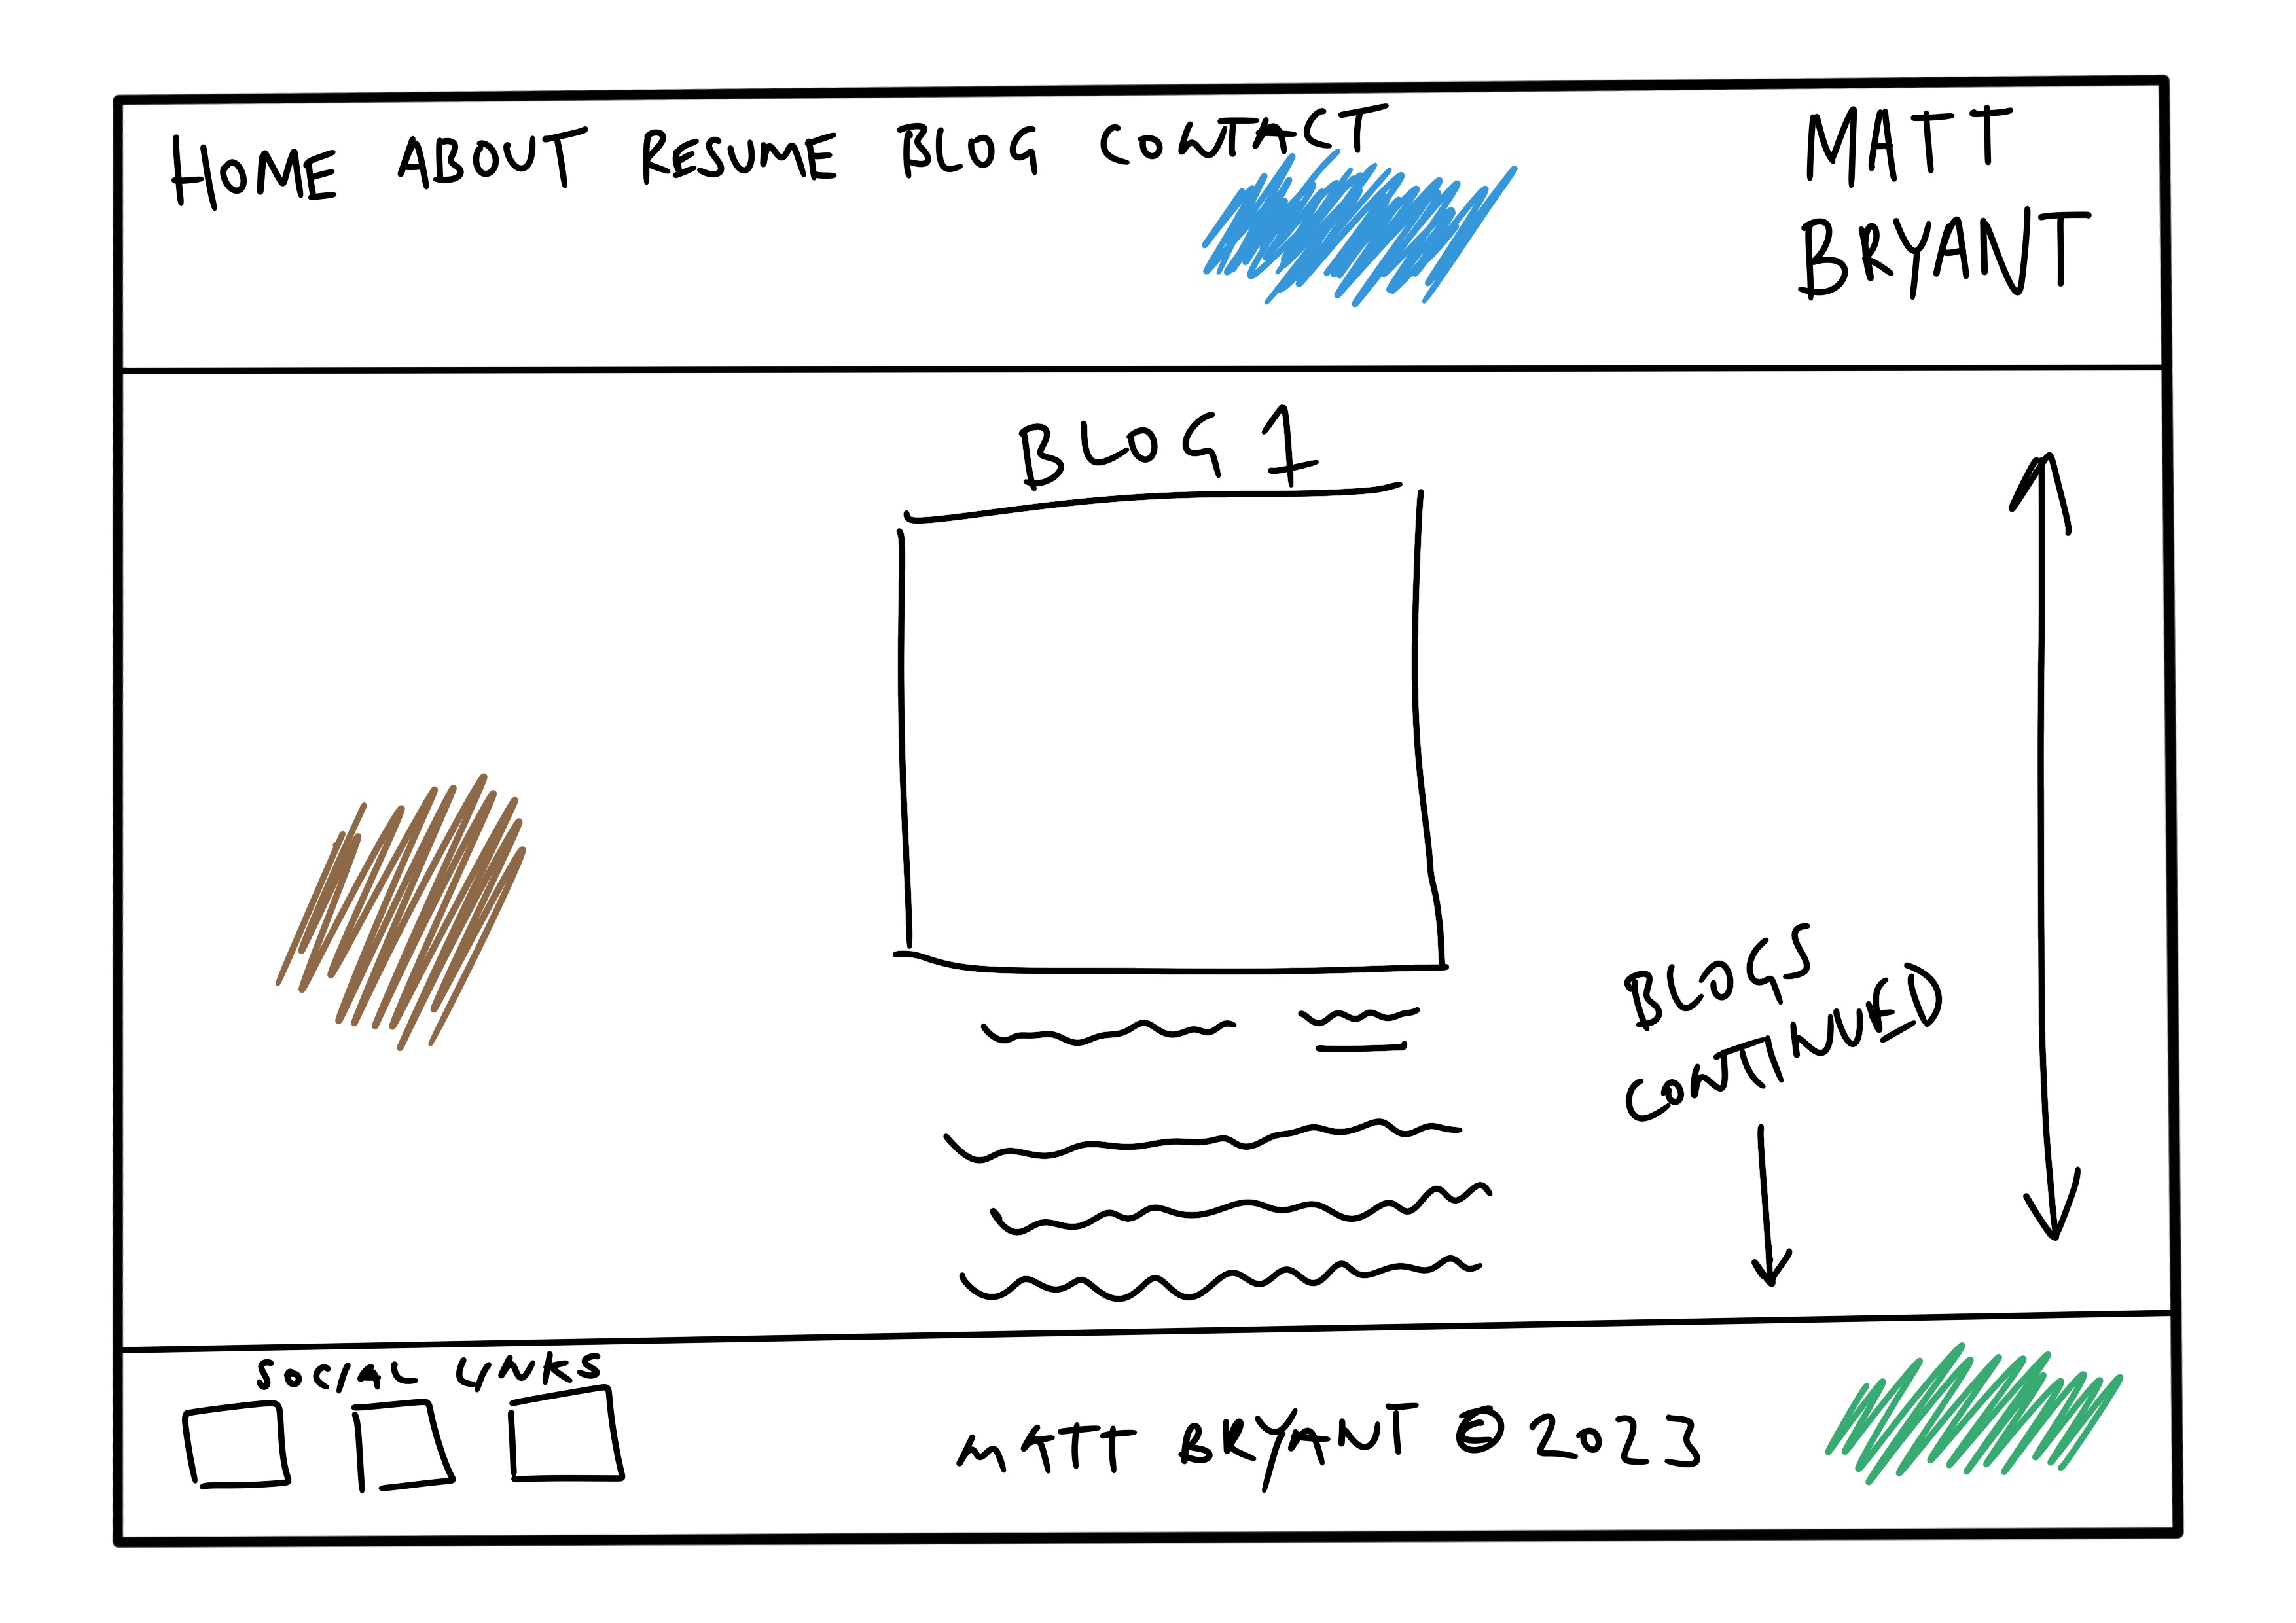 HOME ABOUT RESUME BLOG CONTACT
MATT
BRYANT
BLOG 1
BLOGS
CONTINUED
SOCIAL LINKS
MATT BRYANT © 2023